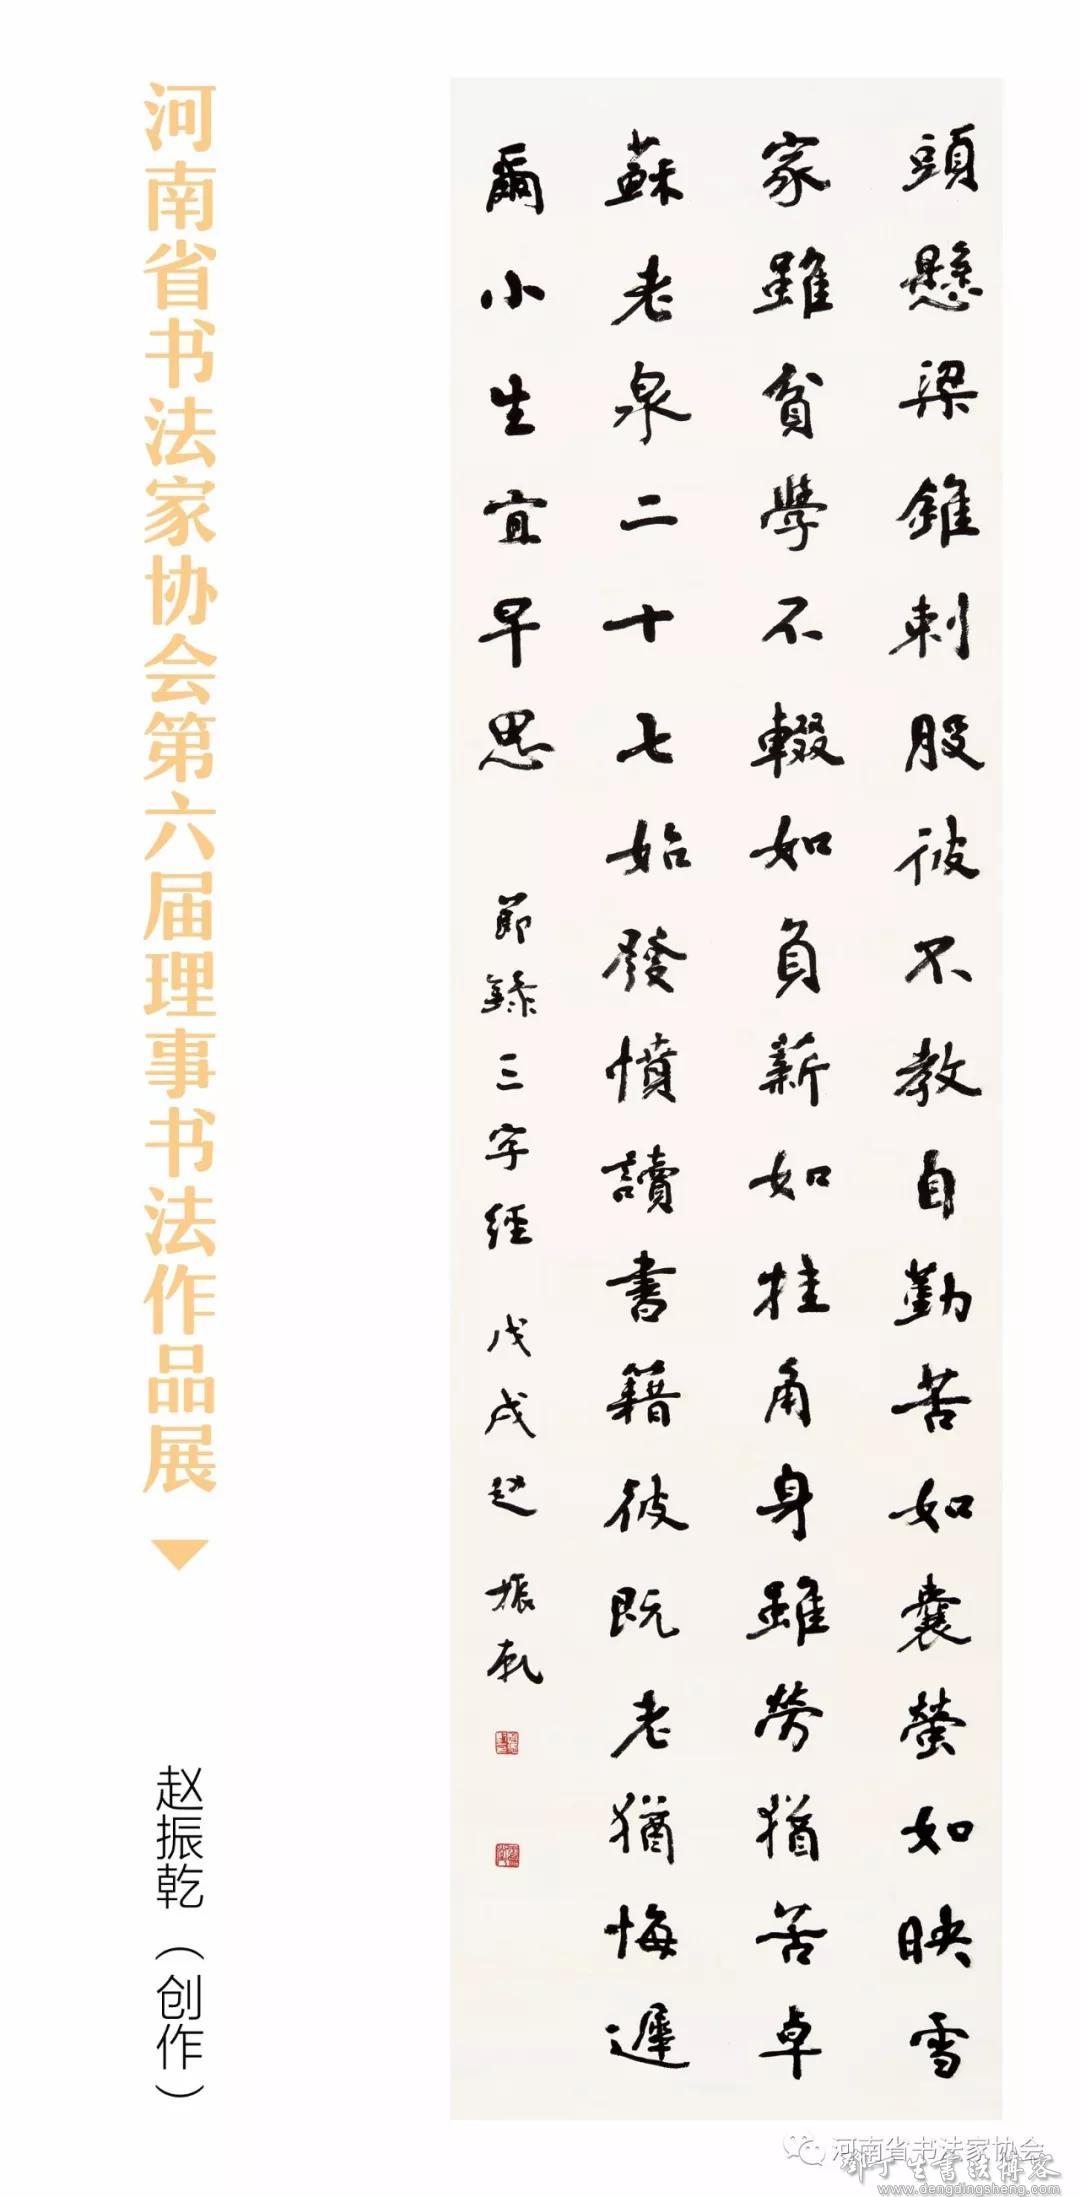 頭懸梁錐刺股彼不教自勤苦如囊螢如映雪
家雖貧學不輟如負薪如挂角身雖勞猶苦卓
蘇老泉二十七始發憤讀書籍彼既老猶悔遲
爾小生宜早思 節錄三字經 戊戌赵振乾
河南省书法家协会第六届理事书法作品展
赵振乾（创作）
河南省书法家协会
邓丁生书法博客
www.dengdingsheng.com